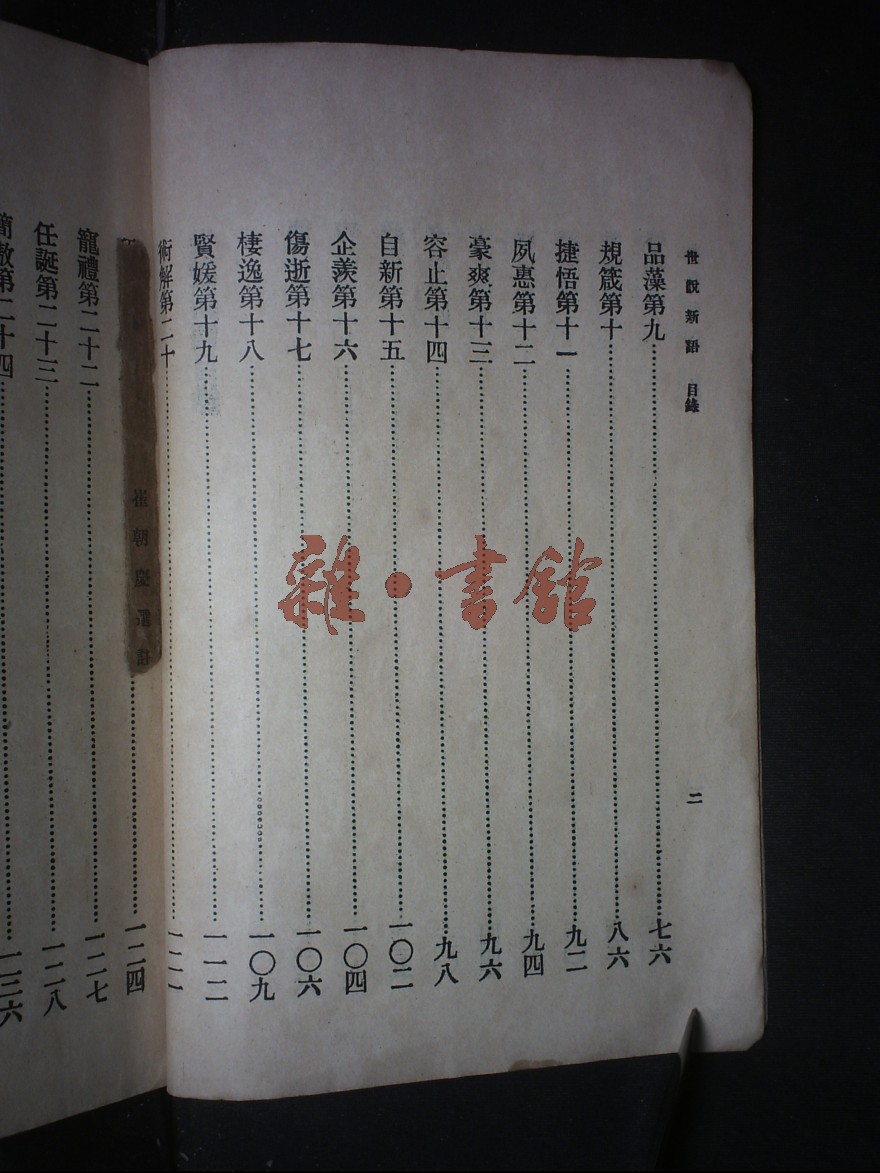 世說新語 目錄 二
品藻第九……七六
規箴第十……八六
捷悟第十一……九二
夙惠第十二……九四
豪爽第十三……九六
容止第十四……九八
自新第十五……一〇二
企羨第十六……一〇四
傷逝第十七……一〇六
棲逸第十八……一〇九
賢媛第十九……一一二
術解第二十……一二一
……一二四
寵禮第二十二……一二七
任誕第二十三……一二八
簡傲第二十四……一三六
崔朝慶選註
雜·書館